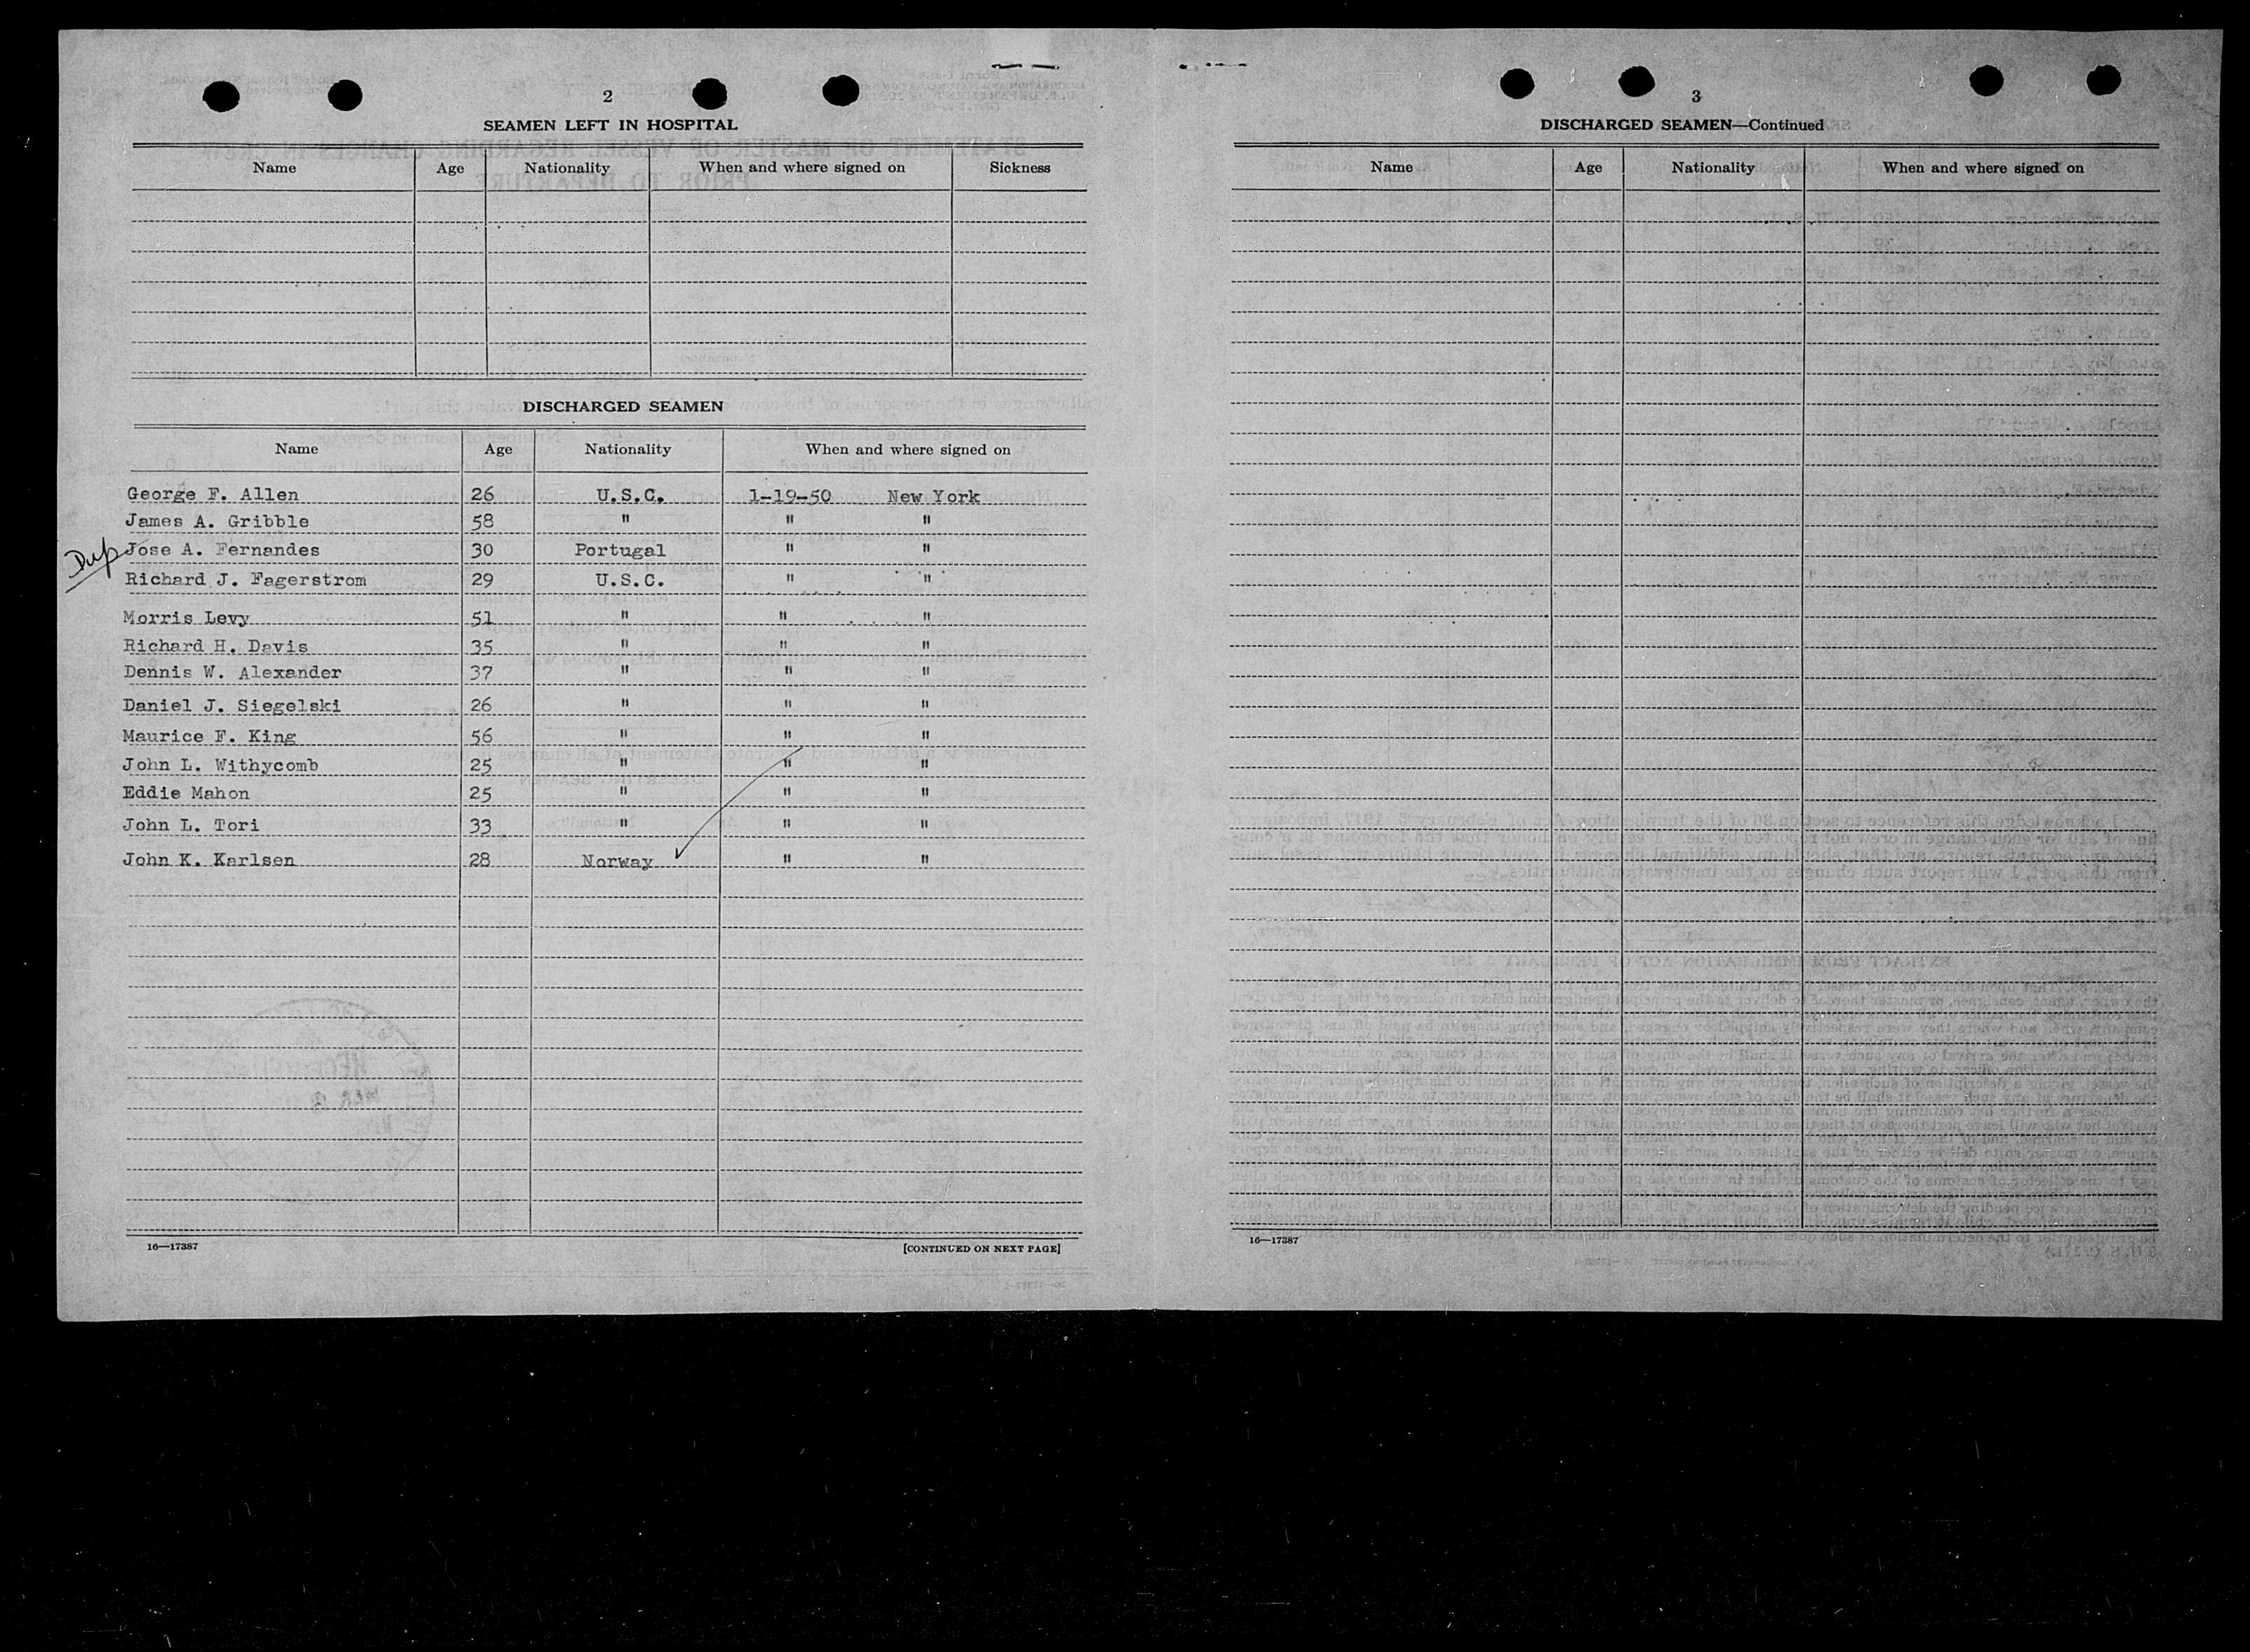 2
SEAMEN LEFT IN HOSPITAL
Name Age Nationality When and where signed on Sickness
DISCHARGED SEAMEN
Name Age Nationality When and where signed on
George F. Allen 26 U.S.C. 1-19-50 New York
James A. Gribble 58 " " "
Dup Jose A. Fernandes 30 Portugal " "
Richard J. Fagerstrom 29 U.S.C. " "
Morris Levy 51 " " "
Richard H. Davis 35 " " "
Dennis W. Alexander 37 " " "
Daniel J. Siegelski 26 " " "
Maurice F. King 56 " " "
John L. Withycomb 25 " " "
Eddie Mahon 25 " " "
John L. Tori 33 " " "
John K. Karlsen 28 Norway ✓ " "
16—17387 [CONTINUED ON NEXT PAGE]
3
DISCHARGED SEAMEN—Continued
Name Age Nationality When and where signed on
16—17387